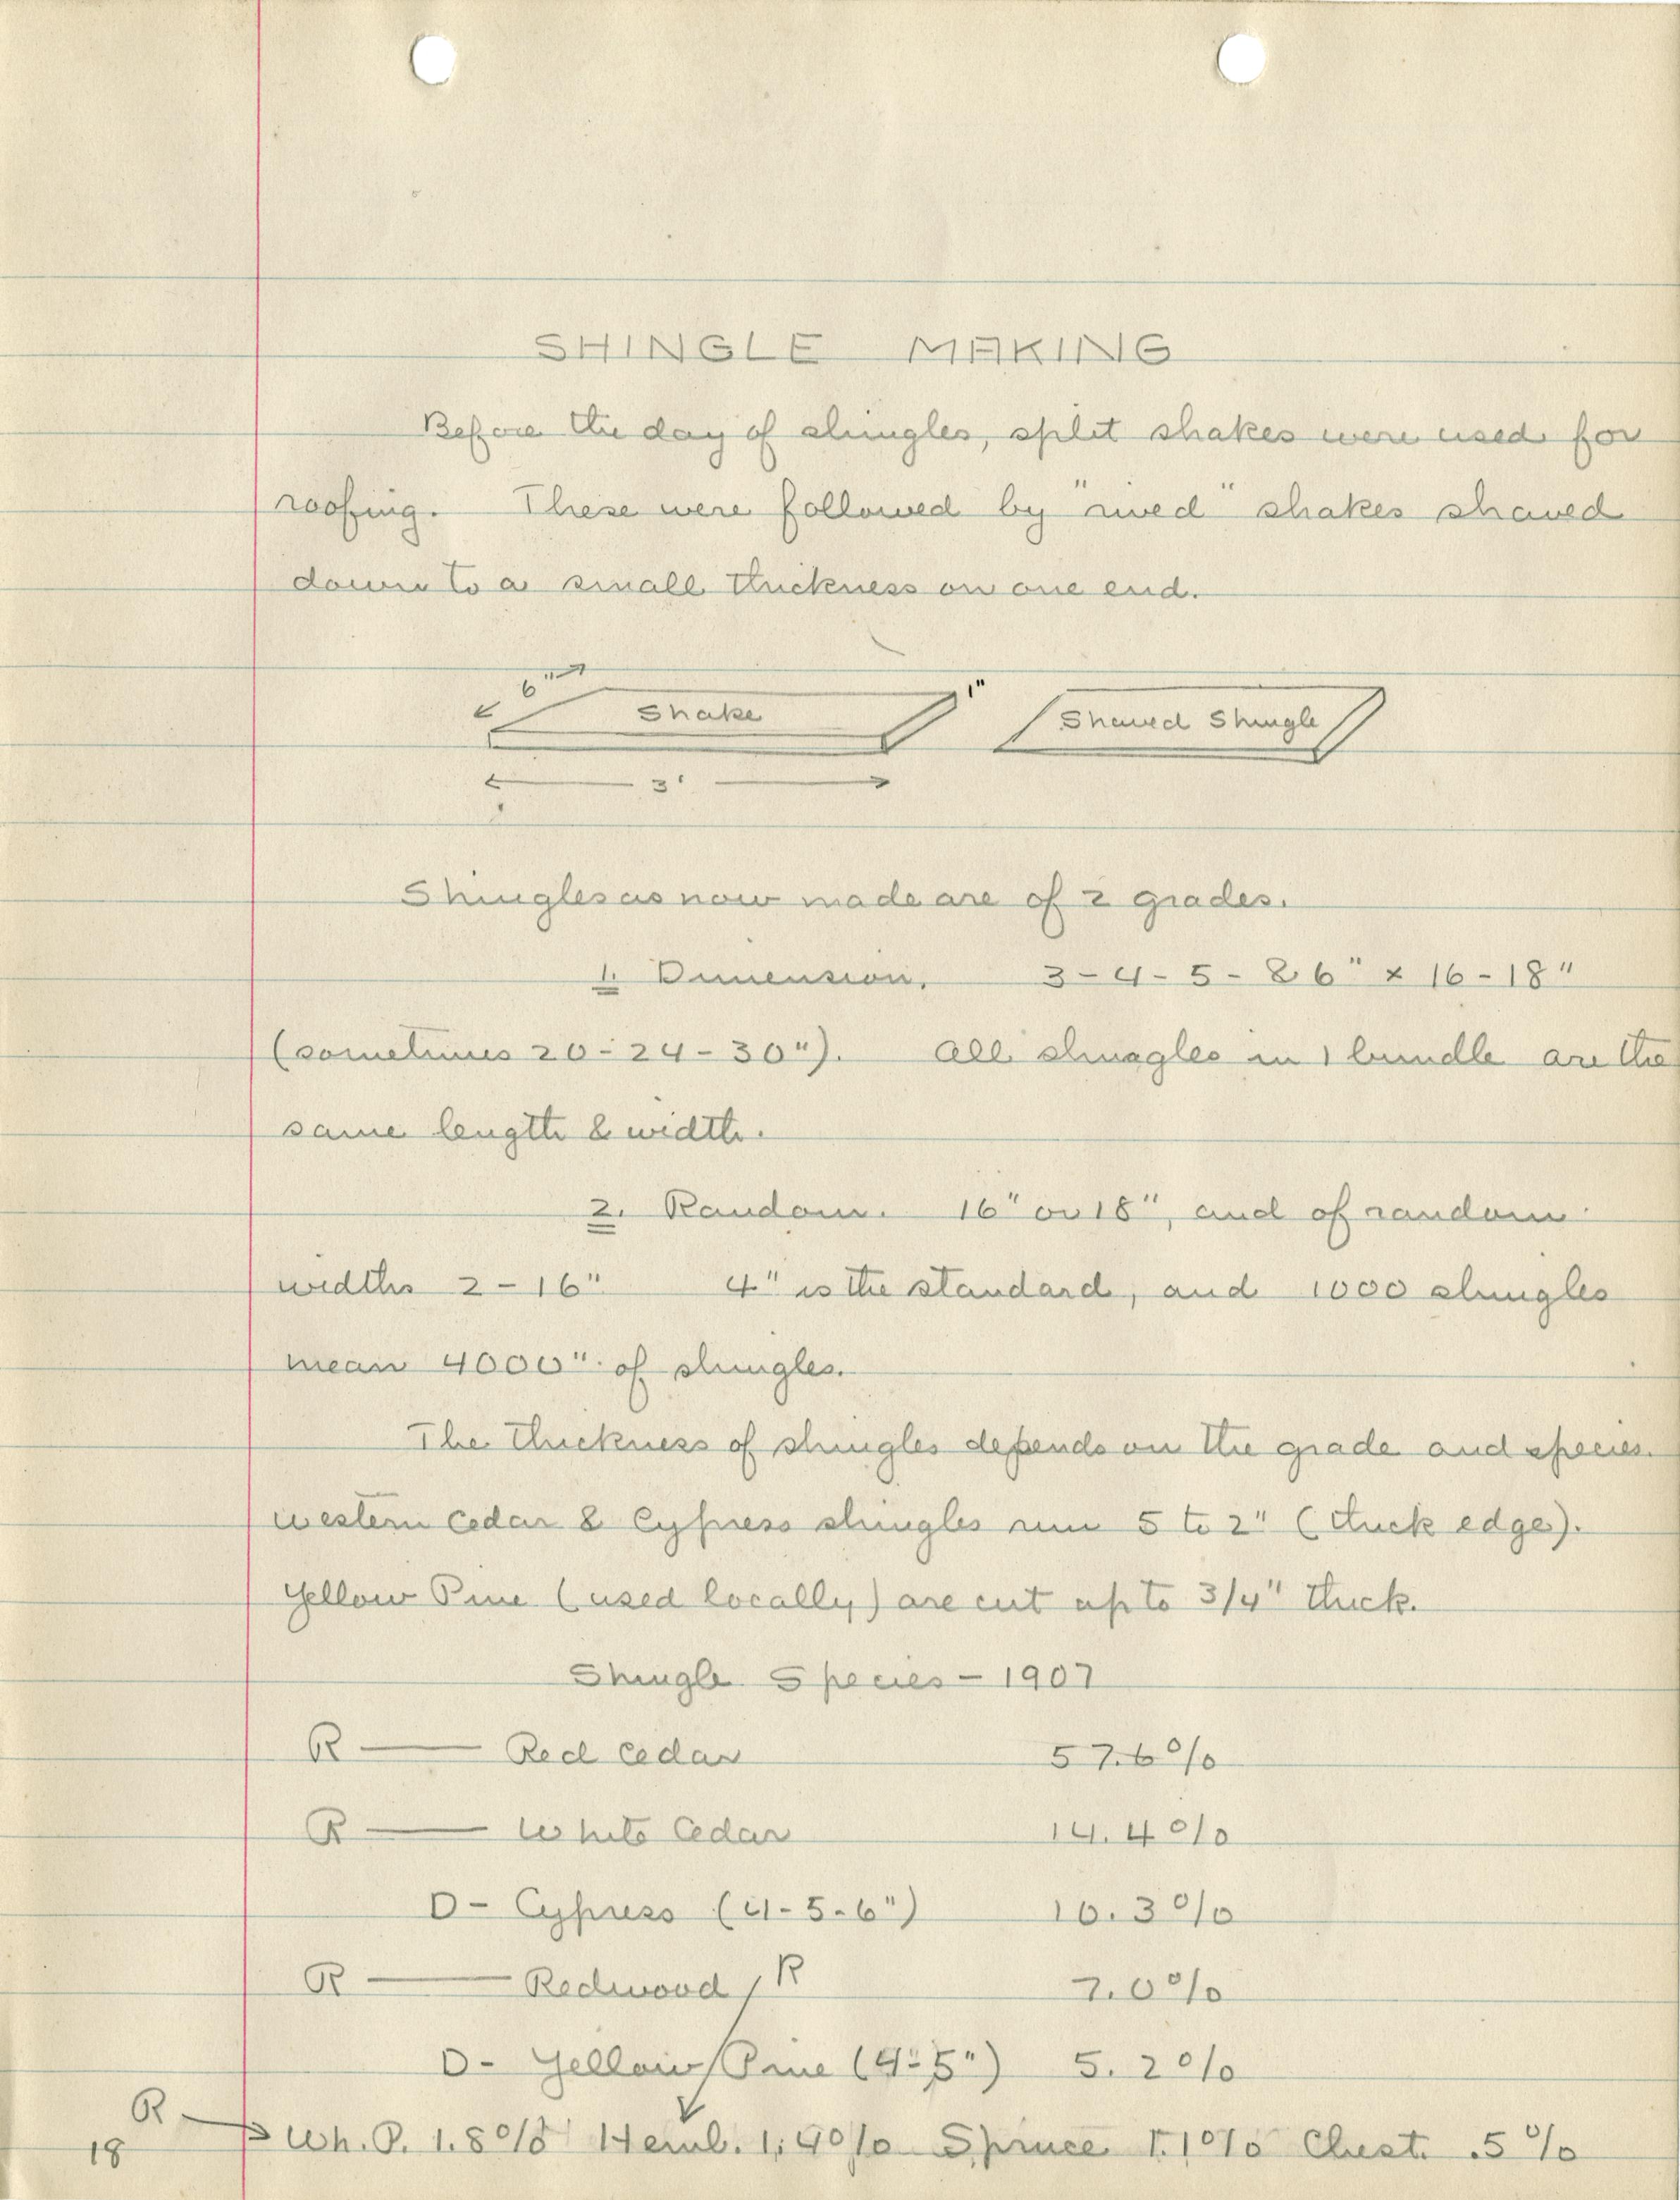 SHINGLE MAKING
Before the day of shingles, split shakes were used for
roofing. These were followed by "rived" shakes shaved
down to a small thickness on one end.
6"
Shake
1"
Shaved Shingle
3'
Shingles as now made are of 2 grades.
1. Dimension. 3-4-5-&6" x 16-18"
(sometimes 20-24-30"). All shingles in 1 bundle are the
same length & width.
2. Random. 16" or 18", and of random
widths 2-16" 4" is the standard, and 1000 shingles
mean 4000" of shingles.
The thickness of shingles depends on the grade and species.
Western Cedar & Cypress shingles run 5 to 2" (thick edge).
Yellow Pine (used locally) are cut up to 3/4" thick.
Shingle Species - 1907
R — Red Cedar 57.6%
R — White Cedar 14.4%
D - Cypress (4-5-6") 10.3%
R — Redwood R 7.0%
D - Yellow Pine (4-5") 5.2%
R Wh. P. 1.8% Heml. 1.40% Spruce 1.1% Chest. .5%
18